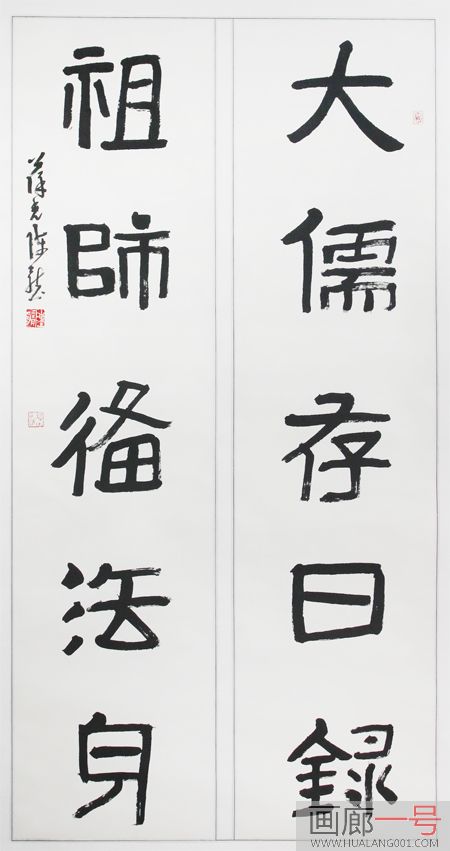 大儒存日錄
祖師俻法身
画廊一号
WWW.HUALANG001.COM